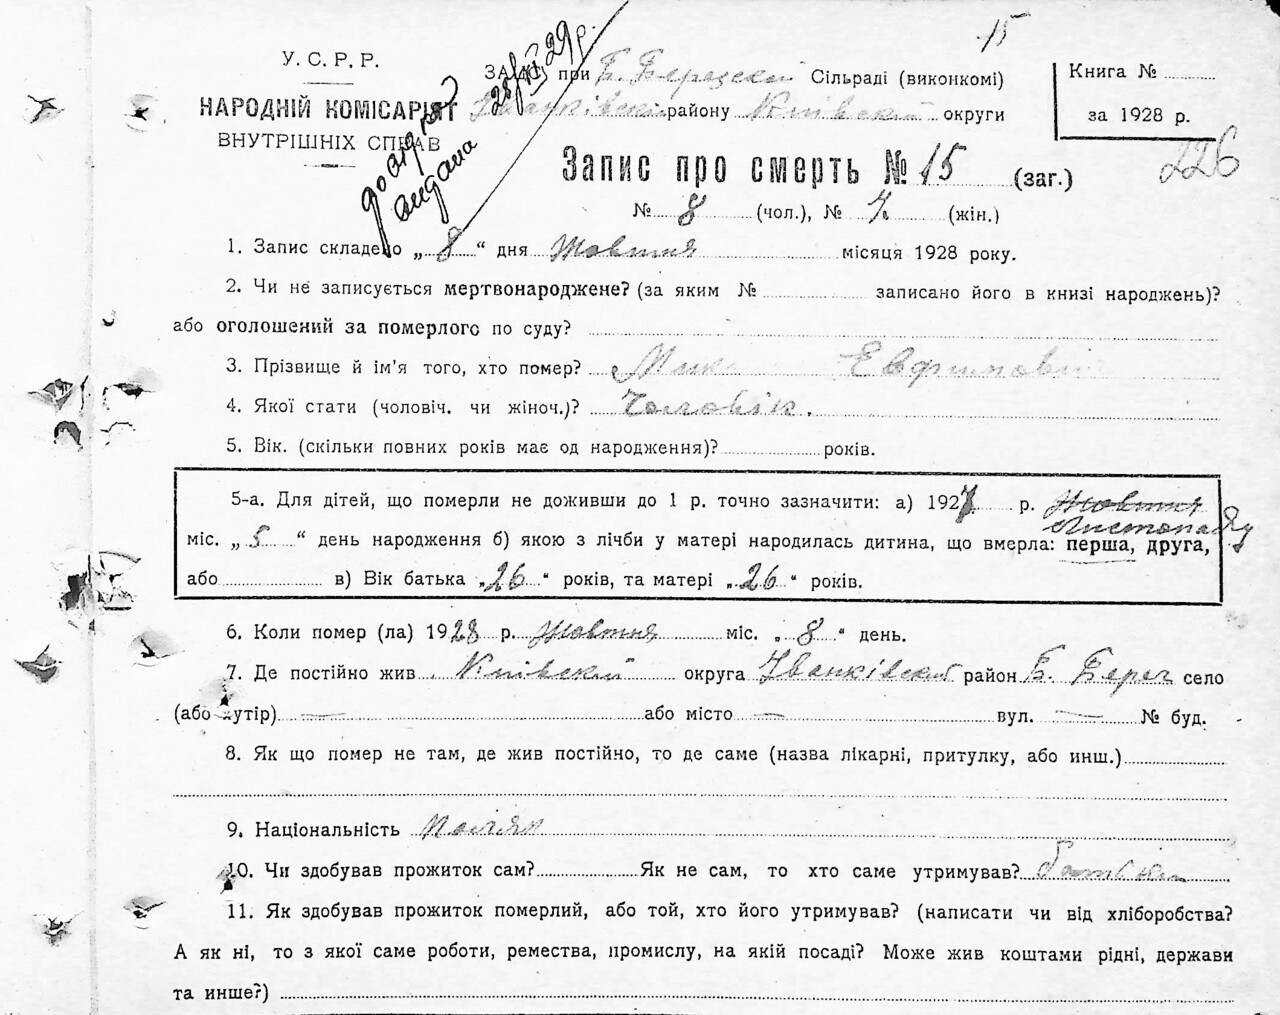 15
У. С. Р. Р.
НАРОДНІЙ КОМІСАРІЯТ
ВНУТРІШНІХ СПРАВ
при Б.Берецькій Сільраді (виконкомі)
Іванківськ. району Київської округи
Книга №
за 1928 р.
226
видана
Запис про смерть № 15 (заг.)
№ 8 (чол.), № 7 (жін.)
1. Запис складено „ 8 “ дня Жовтня місяця 1928 року.
2. Чи не записується мертвонароджене? (за яким № записано його в книзі народжень)?
або оголошений за померлого по суду?
3. Прізвище й ім'я того, хто помер? Евфимович
4. Якої стати (чоловіч. чи жіноч.)? Чоловік.
5. Вік. (скільки повних років має од народження)? років.
5-а. Для дітей, що померли не доживши до 1 р. точно зазначити: а) 1927 р. Жовтня
Листопаду
міс. „ 5 “ день народження б) якою з лічби у матері народилась дитина, що вмерла: перша, друга,
або в) Вік батька „ 26 “ років, та матері „ 26 “ років.
6. Коли помер (ла) 1928 р. Жовтня міс. „ 8 “ день.
7. Де постійно жив Київский округа Іванківский район Б. Берег село
(або хутір) — або місто — вул. — № буд.
8. Як що помер не там, де жив постійно, то де саме (назва лікарні, притулку, або инш.)
9. Національність поляк
10. Чи здобував прожиток сам? Як не сам, то хто саме утримував?
11. Як здобував прожиток померлий, або той, хто його утримував? (написати чи від хліборобства?
А як ні, то з якої саме роботи, ремества, промислу, на якій посаді? Може жив коштами рідні, держави
та инше?)